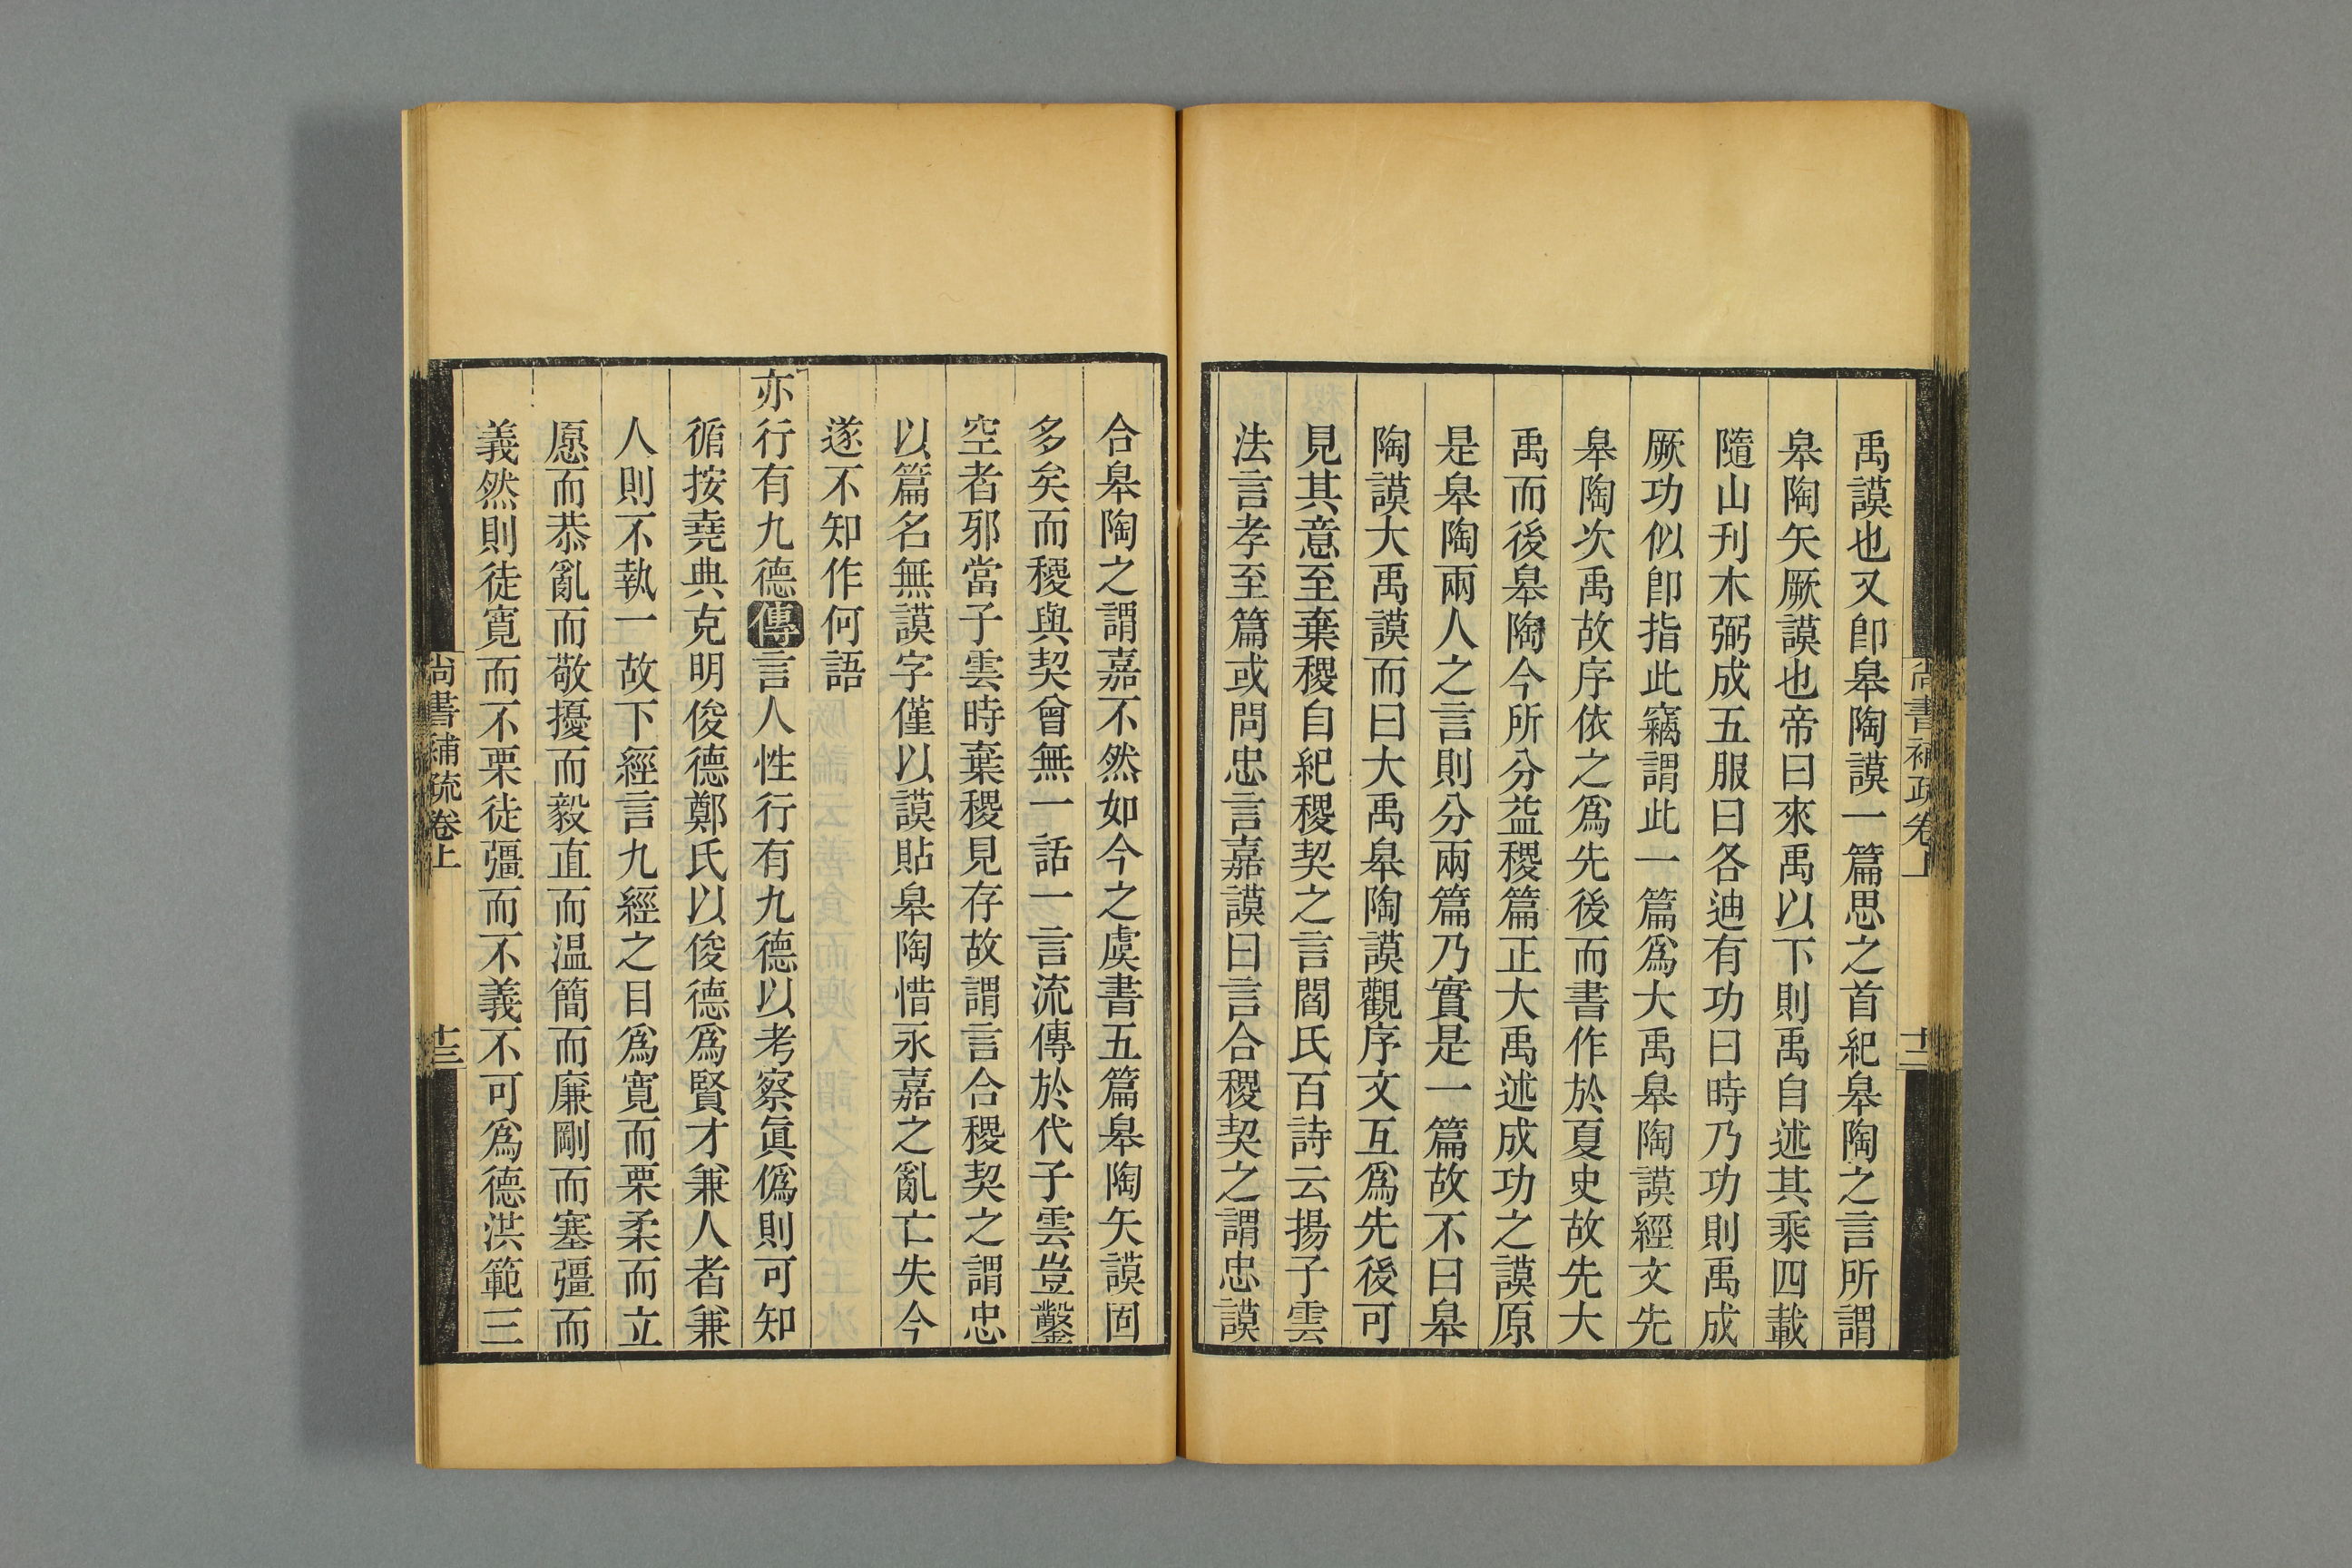 禹謨也又卽皋陶謨一篇思之首紀皋陶之言所謂
皋陶矢厥謨也帝曰來禹以下則禹自述其乘四載
隨山刋木弼成五服曰各迪有功曰時乃功則禹成
厥功似卽指此竊謂此一篇爲大禹皋陶謨經文先
皋陶次禹故序依之爲先後而書作於夏史故先大
禹而後皋陶今所分益稷篇正大禹述成功之謨原
是皋陶兩人之言則分兩篇乃實是一篇故不曰皋
陶謨大禹謨而曰大禹皋陶謨觀序文互爲先後可
見其意至棄稷自紀稷契之言閻氏百詩云揚子雲
法言孝至篇或問忠言嘉謨曰言合稷契之謂忠謨
尚書補疏卷上
十二
合皋陶之謂嘉不然如今之虞書五篇皋陶矢謨固
多矣而稷與契曾無一話一言流傳於代子雲豈鑿
空者邪當子雲時棄稷見存故謂言合稷契之謂忠
以篇名無謨字僅以謨貼皋陶惜永嘉之亂亡失今
遂不知作何語
亦行有九德傳言人性行有九德以考察眞僞則可知
循按堯典克明俊德鄭氏以俊德爲賢才兼人者兼
人則不執一故下經言九經之目爲寬而栗柔而立
愿而恭亂而敬擾而毅直而温簡而廉剛而塞彊而
義然則徒寬而不栗徒彊而不義不可爲德洪範三
尚書補疏卷上
十三